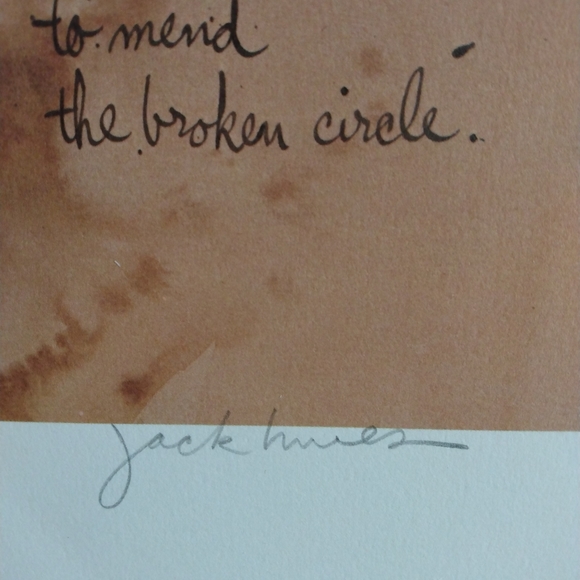 to mend
the broken circle.
jack hines